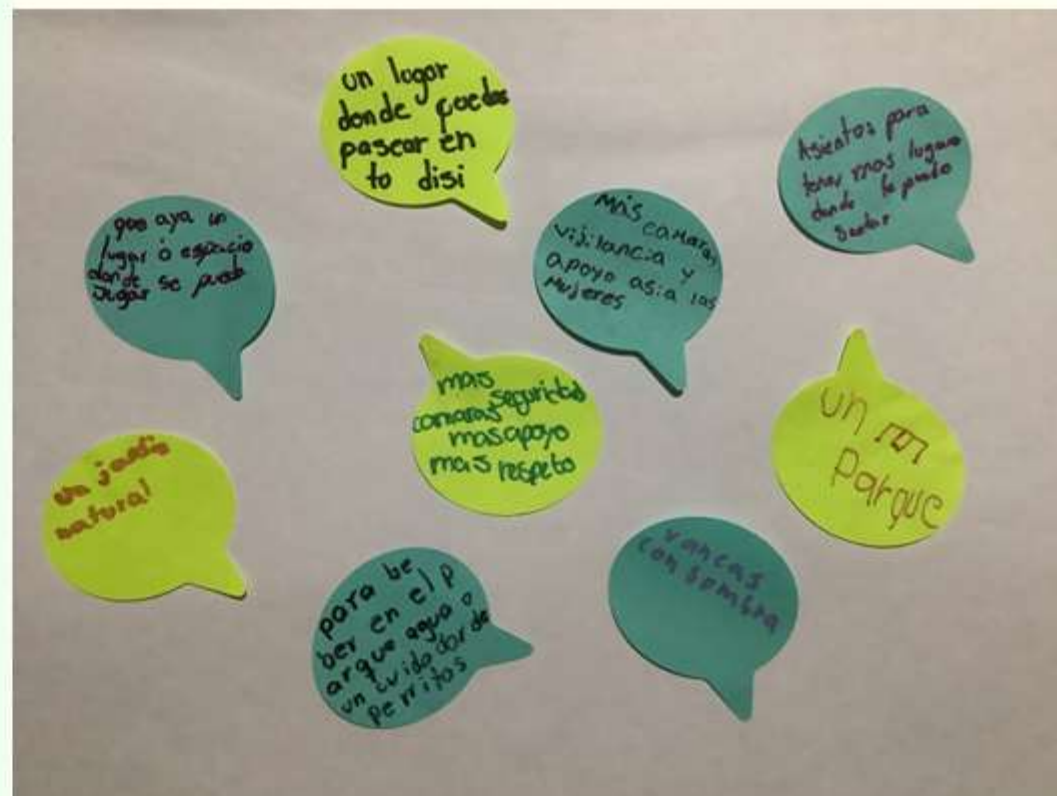 un lugar
donde puedas
pasear en
tu disi
Asientos para
tener mas lugares
donde te puedo
Sentar
que aya un
lugar ó espacio
donde se puede
Jugar
MÁS camaras
vijilancia y
apoyo asia las
Mujeres
mas seguridad
camaras
mas apoyo
mas respeto
un
parque
un jardin
natural
para be
ber en el p
arque agua o
un cuidador de
perritos
vancas
con sombra